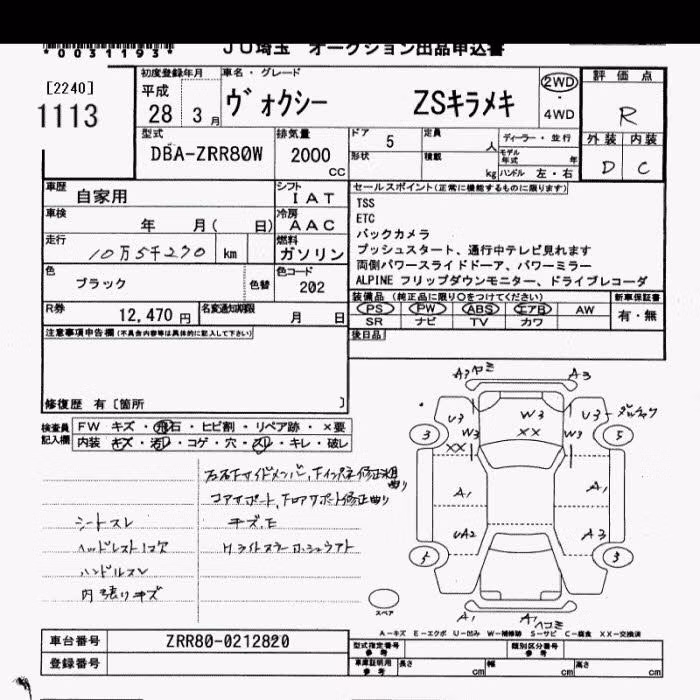 *0031193*
JU埼玉 オークション出品申込書
[2240]
1113
初度登録年月
平成
28 3月
車名・グレード
ヴォクシー ZSキラメキ
2WD
・
4WD
評価点
R
外装 内装
D C
型式
DBA-ZRR80W
排気量
2000
CC
ドア 5
定員 人
形状
積載 kg
ディーラー・並行
モデル年式 年
ハンドル 左・右
車歴 自家用
シフト
IAT
車検 年 月( 日)
冷房
AAC
走行 10万5千270 km
燃料
ガソリン
色
ブラック
色替
色コード
202
R券
12,470 円
名変通知期限
月 日
セールスポイント(正常に機能するものに限ります)
TSS
ETC
バックカメラ
プッシュスタート、通行中テレビ見れます
両側パワースライドドーア、パワーミラー
ALPINE フリップダウンモニター、ドライブレコーダ
装備品 (純正品に限り○をつけてください)
新車保証書
PS PW ABS エアB AW
有・無
SR ナビ TV カワ
後日品
注意事項申告欄(不具合内容等は具体的に記入して下さい)
修復歴 有〔箇所 〕
検査員
記入欄
FW キズ・飛石・ヒビ割・リペア跡・×要
内装 キズ・汚レ・コゲ・穴・スレ・キレ・破レ
コアサポート、
キズ、E
シートスレ
ヘッドレスト1コ欠
ハンドルスレ
内張りキズ
A3 A3
U3 W3 U3
W3 XX W3
XX
3 5
A1 A1
UA2 A3
5 3
A1 A1
スペア
A-キズ E-エクボ U-凹み W-補修跡 S-サビ C-腐食 XX-交換済
車台番号 ZRR80-0212820
登録番号
型式指定番号
参考
類別区分番号
参考
車庫証明用
参考
長さ cm
幅 cm
高さ cm